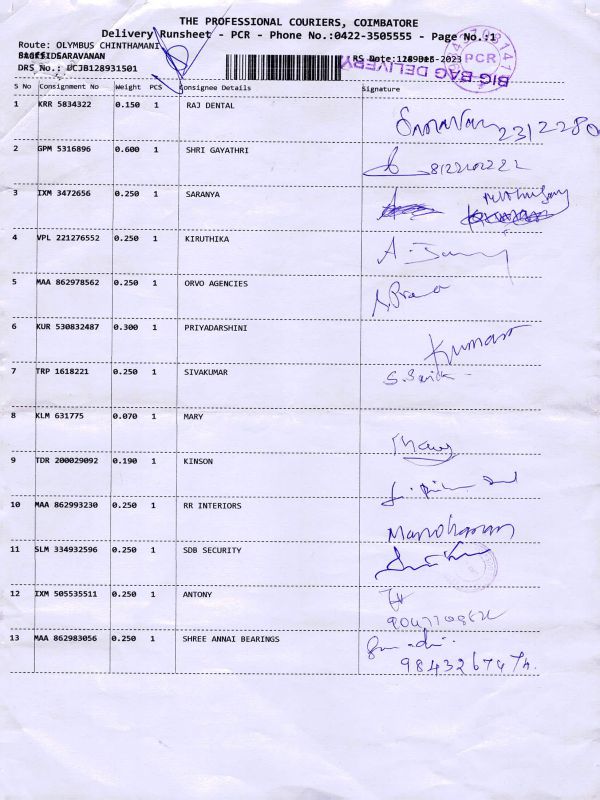 THE PROFESSIONAL COURIERS, COIMBATORE
Delivery Runsheet - PCR - Phone No.:0422-3505555 - Page No.:1
Route: OLYMBUS CHINTHAMANI
SARAVANAN
DRS No.: PCJB128931501
BIG BAG DELIVERY
PCR
S No Consignment No Weight PCS Consignee Details Signature
1 KRR 5834322 0.150 1 RAJ DENTAL
Saravan 2312280
2 GPM 5316896 0.600 1 SHRI GAYATHRI
3 IXM 3472656 0.250 1 SARANYA
4 VPL 221276552 0.250 1 KIRUTHIKA
5 MAA 862978562 0.250 1 ORVO AGENCIES
6 KUR 530832487 0.300 1 PRIYADARSHINI
Kumar
7 TRP 1618221 0.250 1 SIVAKUMAR
8 KLM 631775 0.070 1 MARY
9 TDR 200029092 0.190 1 KINSON
10 MAA 862993230 0.250 1 RR INTERIORS
Manoharan
11 SLM 334932596 0.250 1 SDB SECURITY
12 IXM 505535511 0.250 1 ANTONY
13 MAA 862983056 0.250 1 SHREE ANNAI BEARINGS